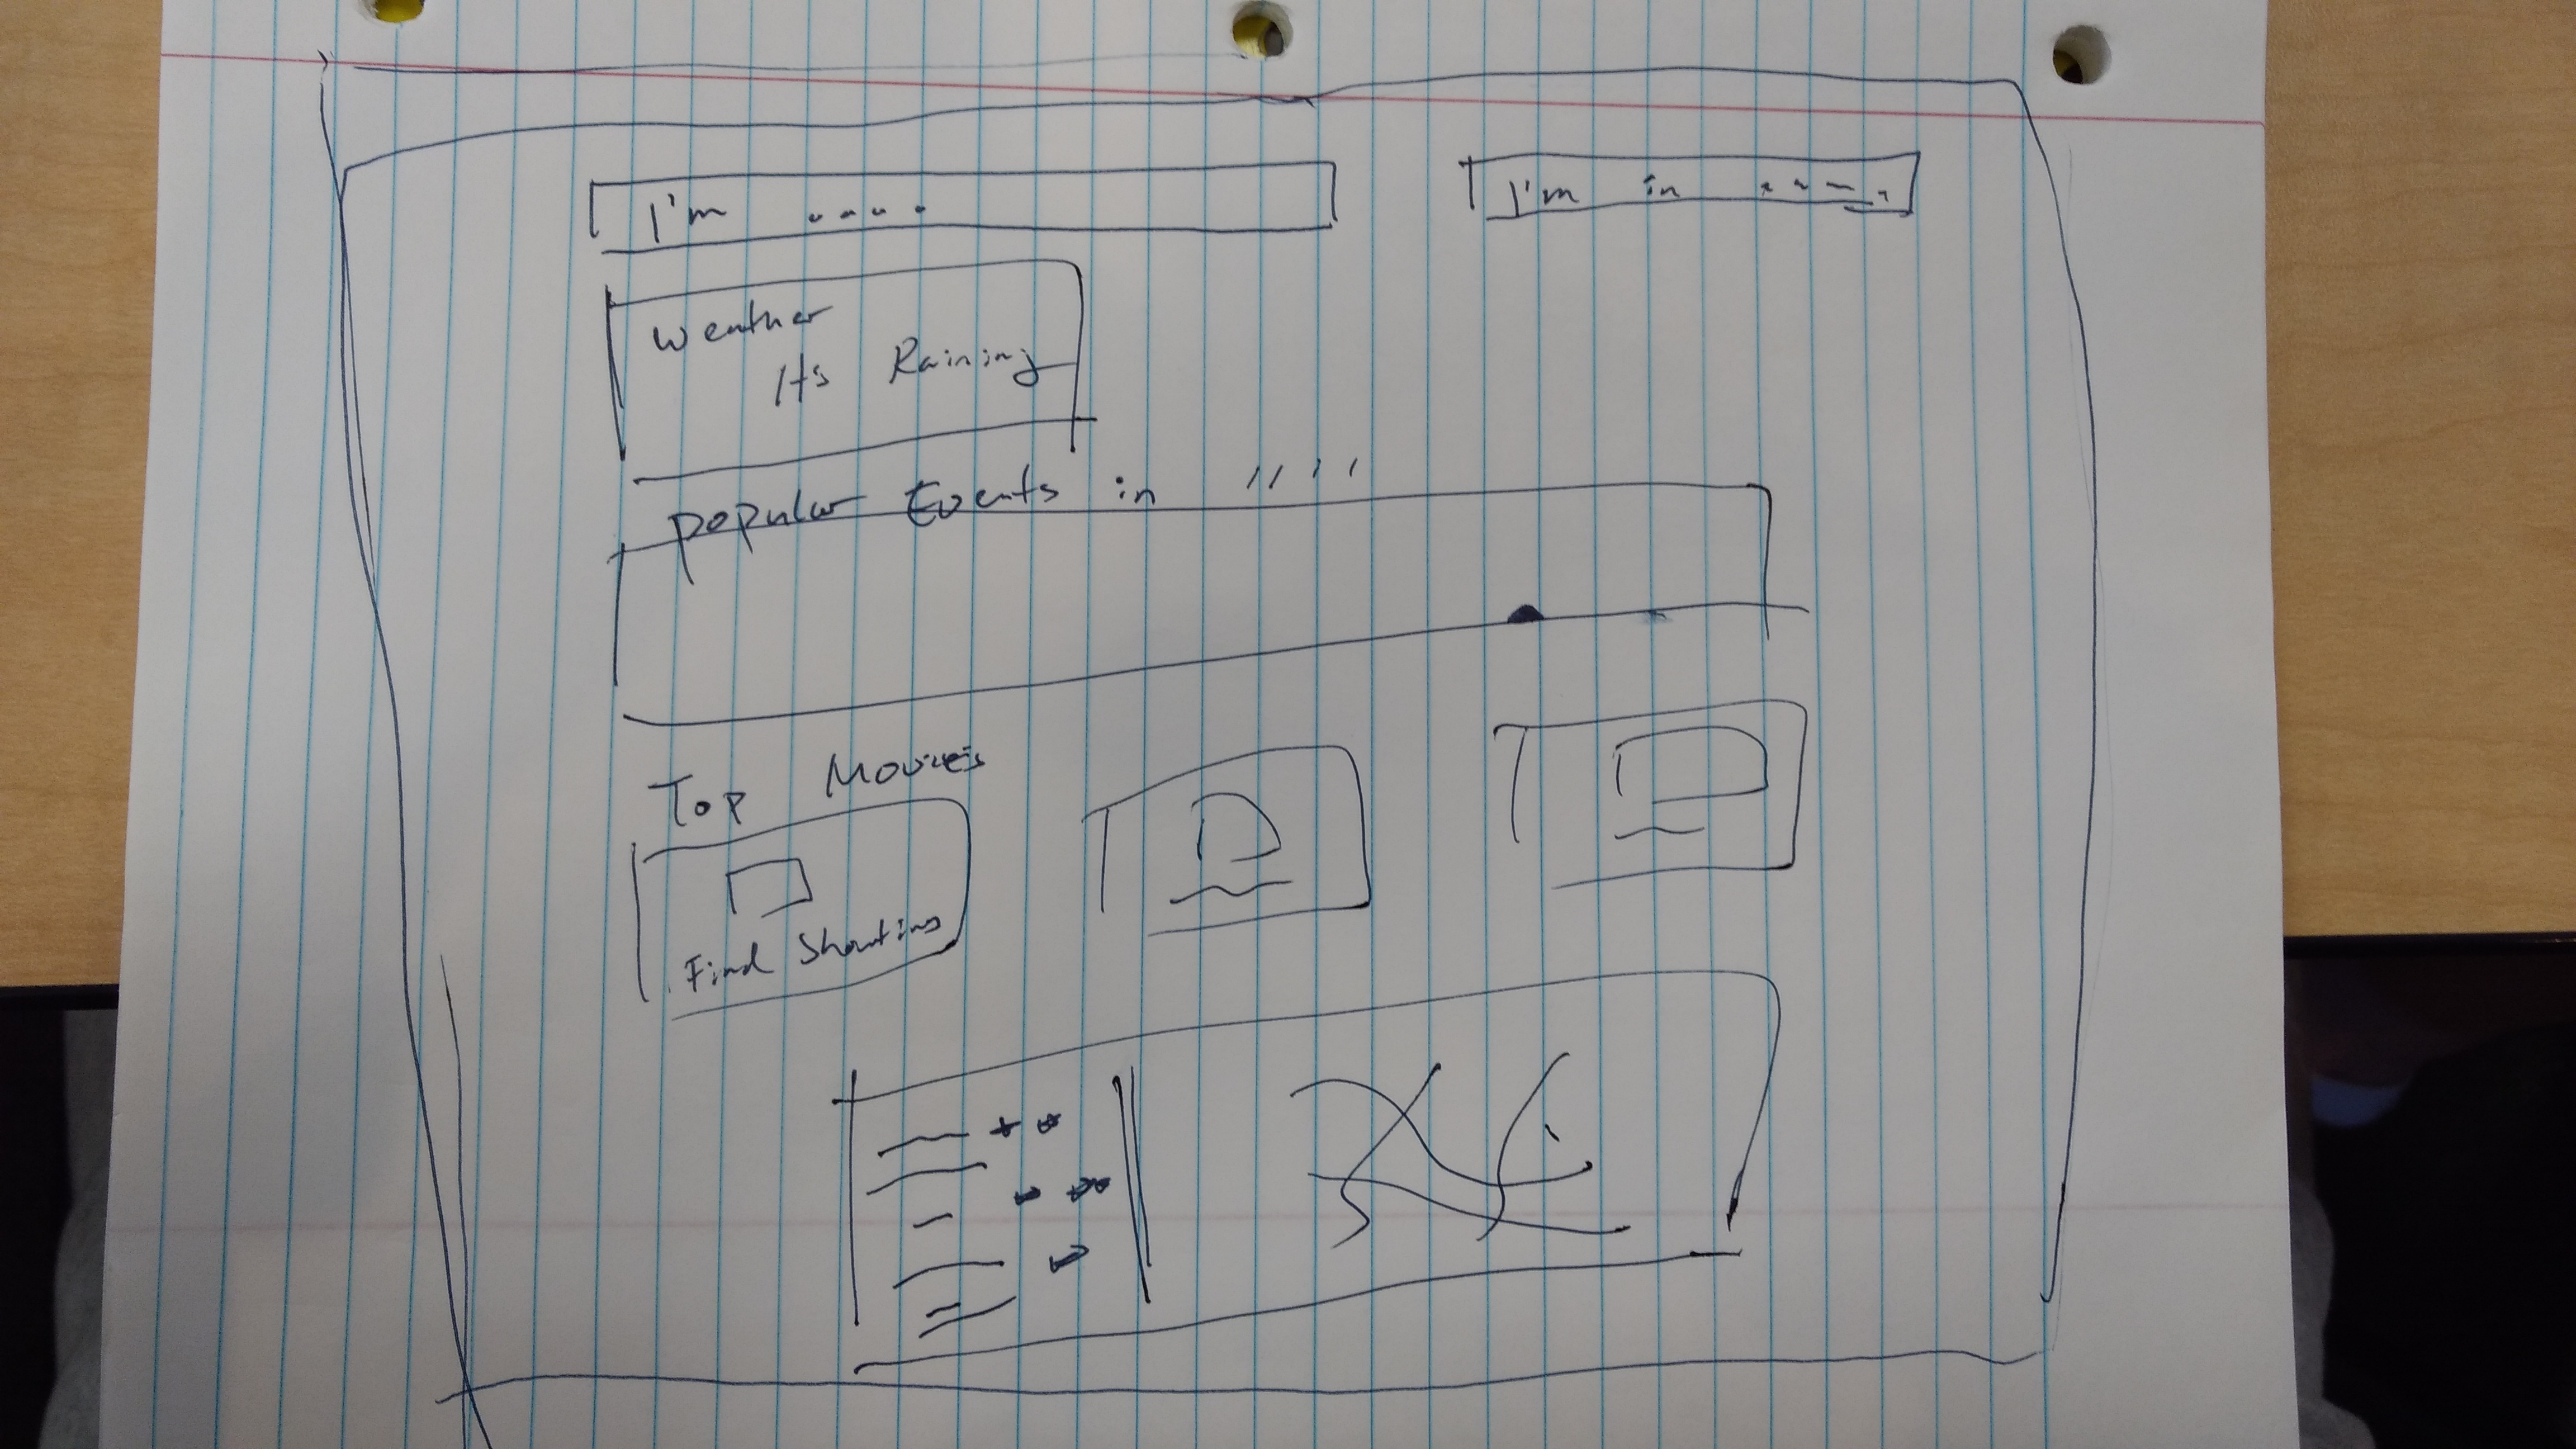 I'm ....
I'm in ....
Weather
It's Raining
popular Events in ....
Top Movies
Find Showtims